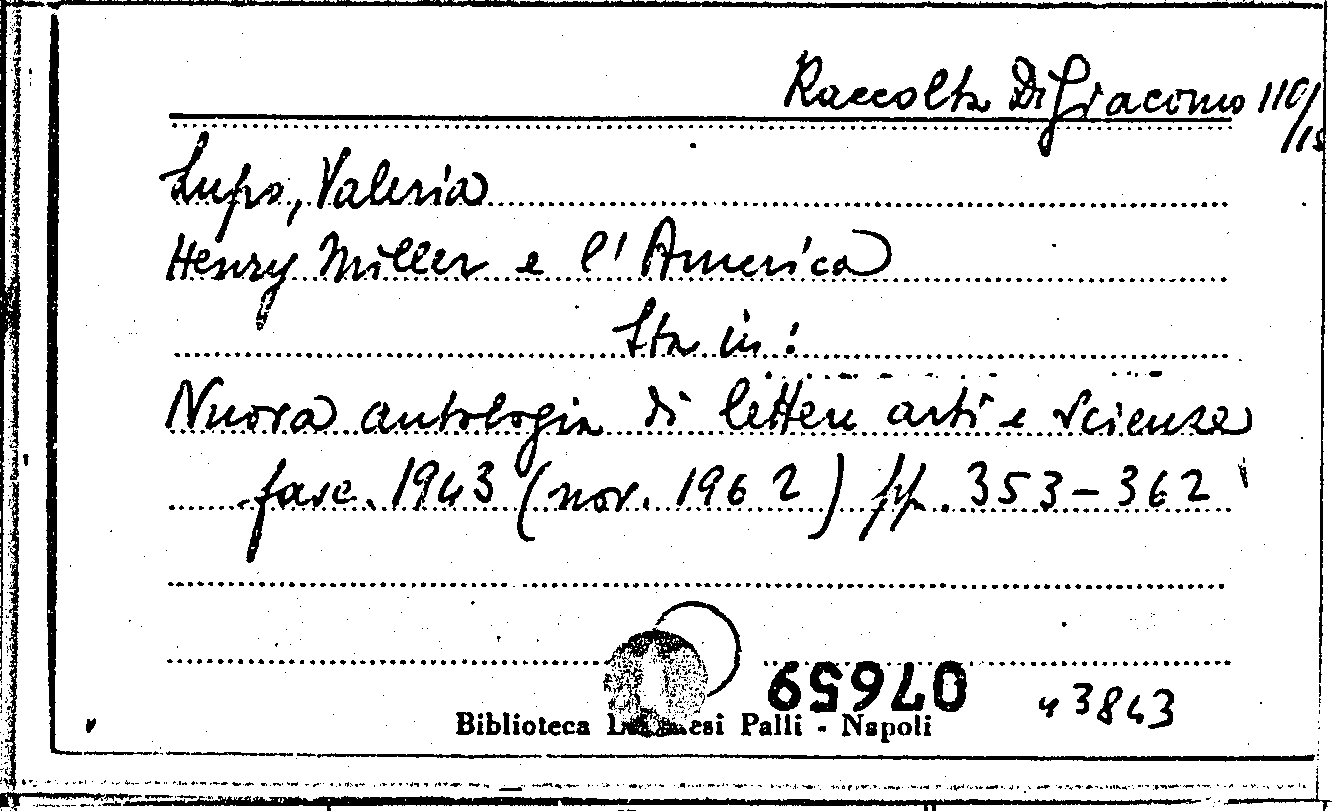 Raccolta Di Giacomo 110/15
Lupo, Valeria
Henry Miller e l'America
Sta in:
Nuova antologia di lettere arti e scienze
fasc. 1943 (nov. 1962) pp. 353-362
07659
43843
Biblioteca Lucchesi Palli - Napoli